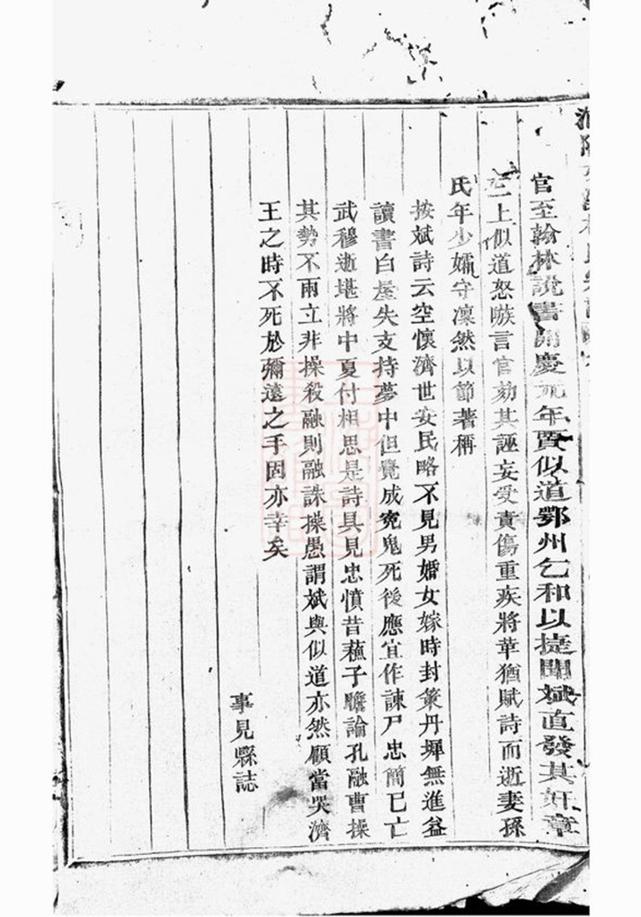 官至翰林說書開慶元年賈似道鄂州乞和以捷聞斌直發其奸章
三上似道怒嗾言官劾其誣妄受責傷重疾將華猶賦詩而逝妻孫
氏年少孀守凜然以節著稱
按斌詩云空懷濟世安民略不見男婚女嫁時封策丹墀無進益
讀書白屋失支持夢中但覺成寃鬼死後應宜作諫尸忠簡已亡
武穆逝堪將中夏付相思是詩具見忠憤昔蘓子瞻論孔融曹操
其勢不兩立非操殺融則融誅操愚謂斌與似道亦然顧當哭濟
王之時不死於彌遠之手因亦幸矣
事見縣誌